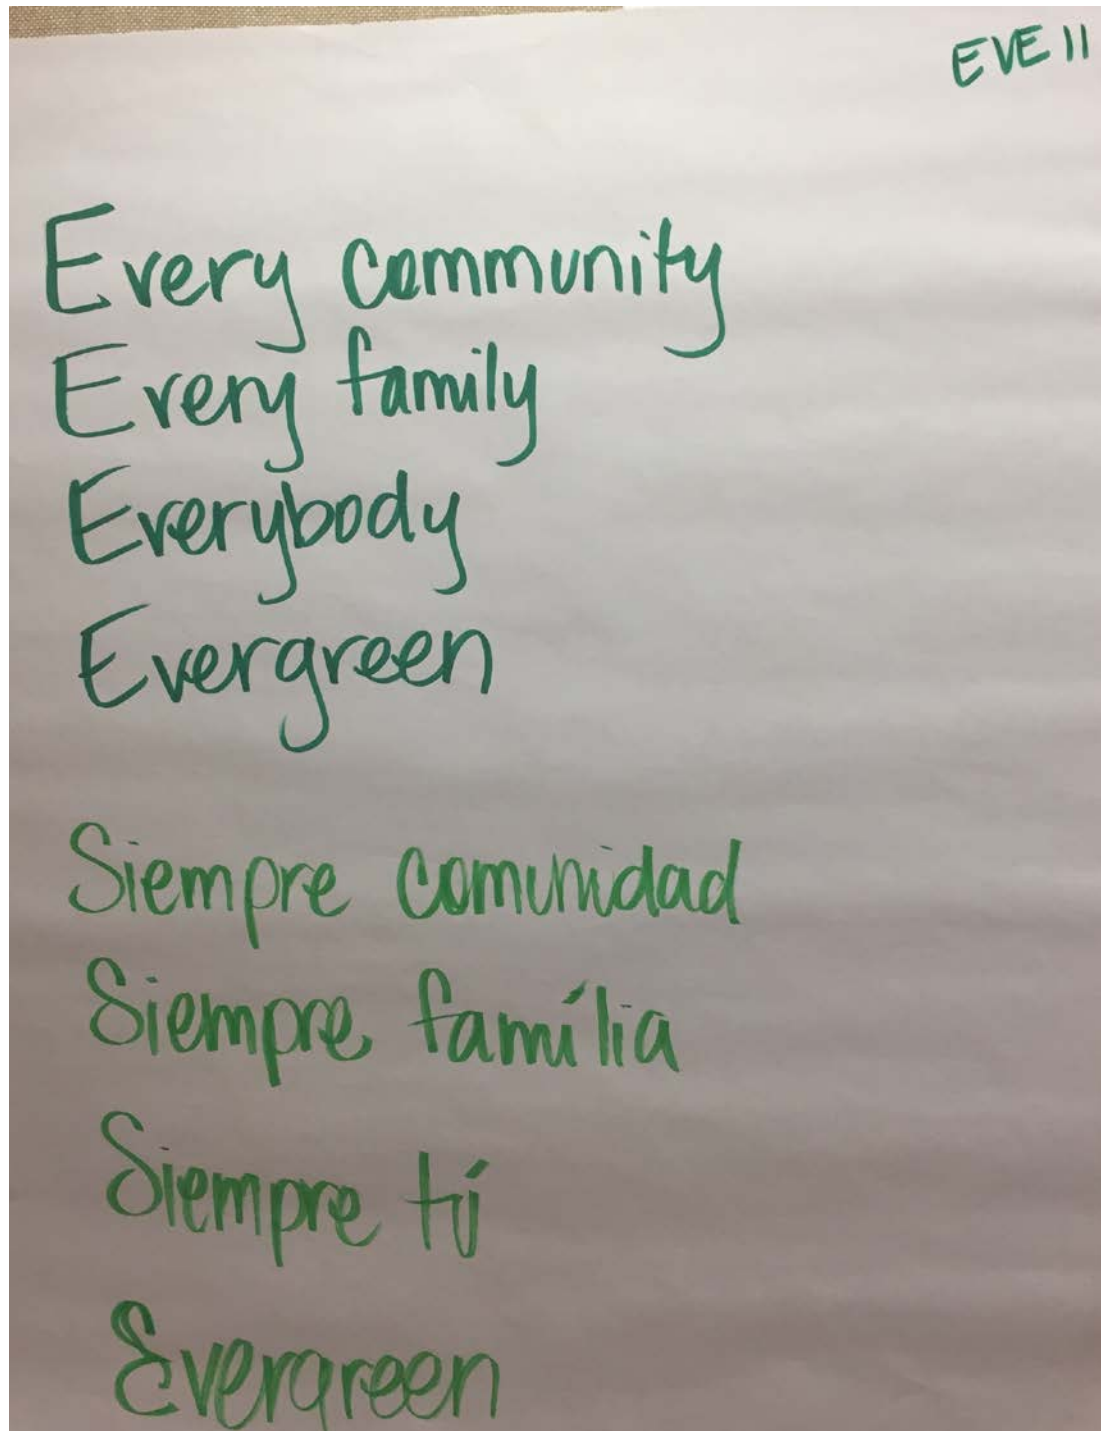 EVE 11
Every community
Every family
Everybody
Evergreen
Siempre comunidad
Siempre família
Siempre tú
Evergreen